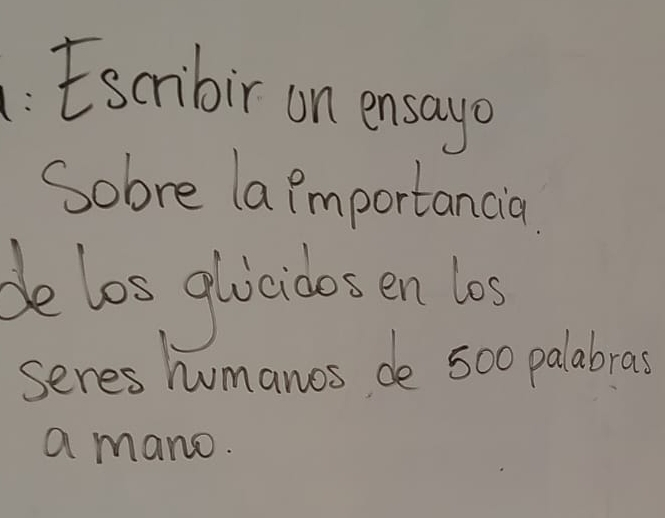 : Escribir un ensayo
Sobre la importancia.
de los glúcidos en los
seres humanos de 500 palabras
a mano.